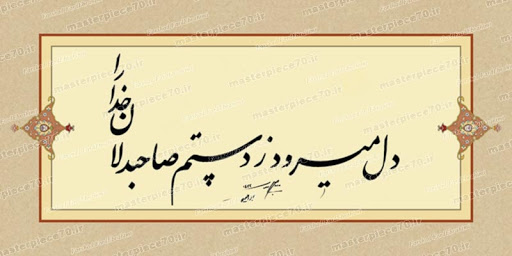 دل میرود ز دستم صاحبدلان خدا را
masterpiece70.ir